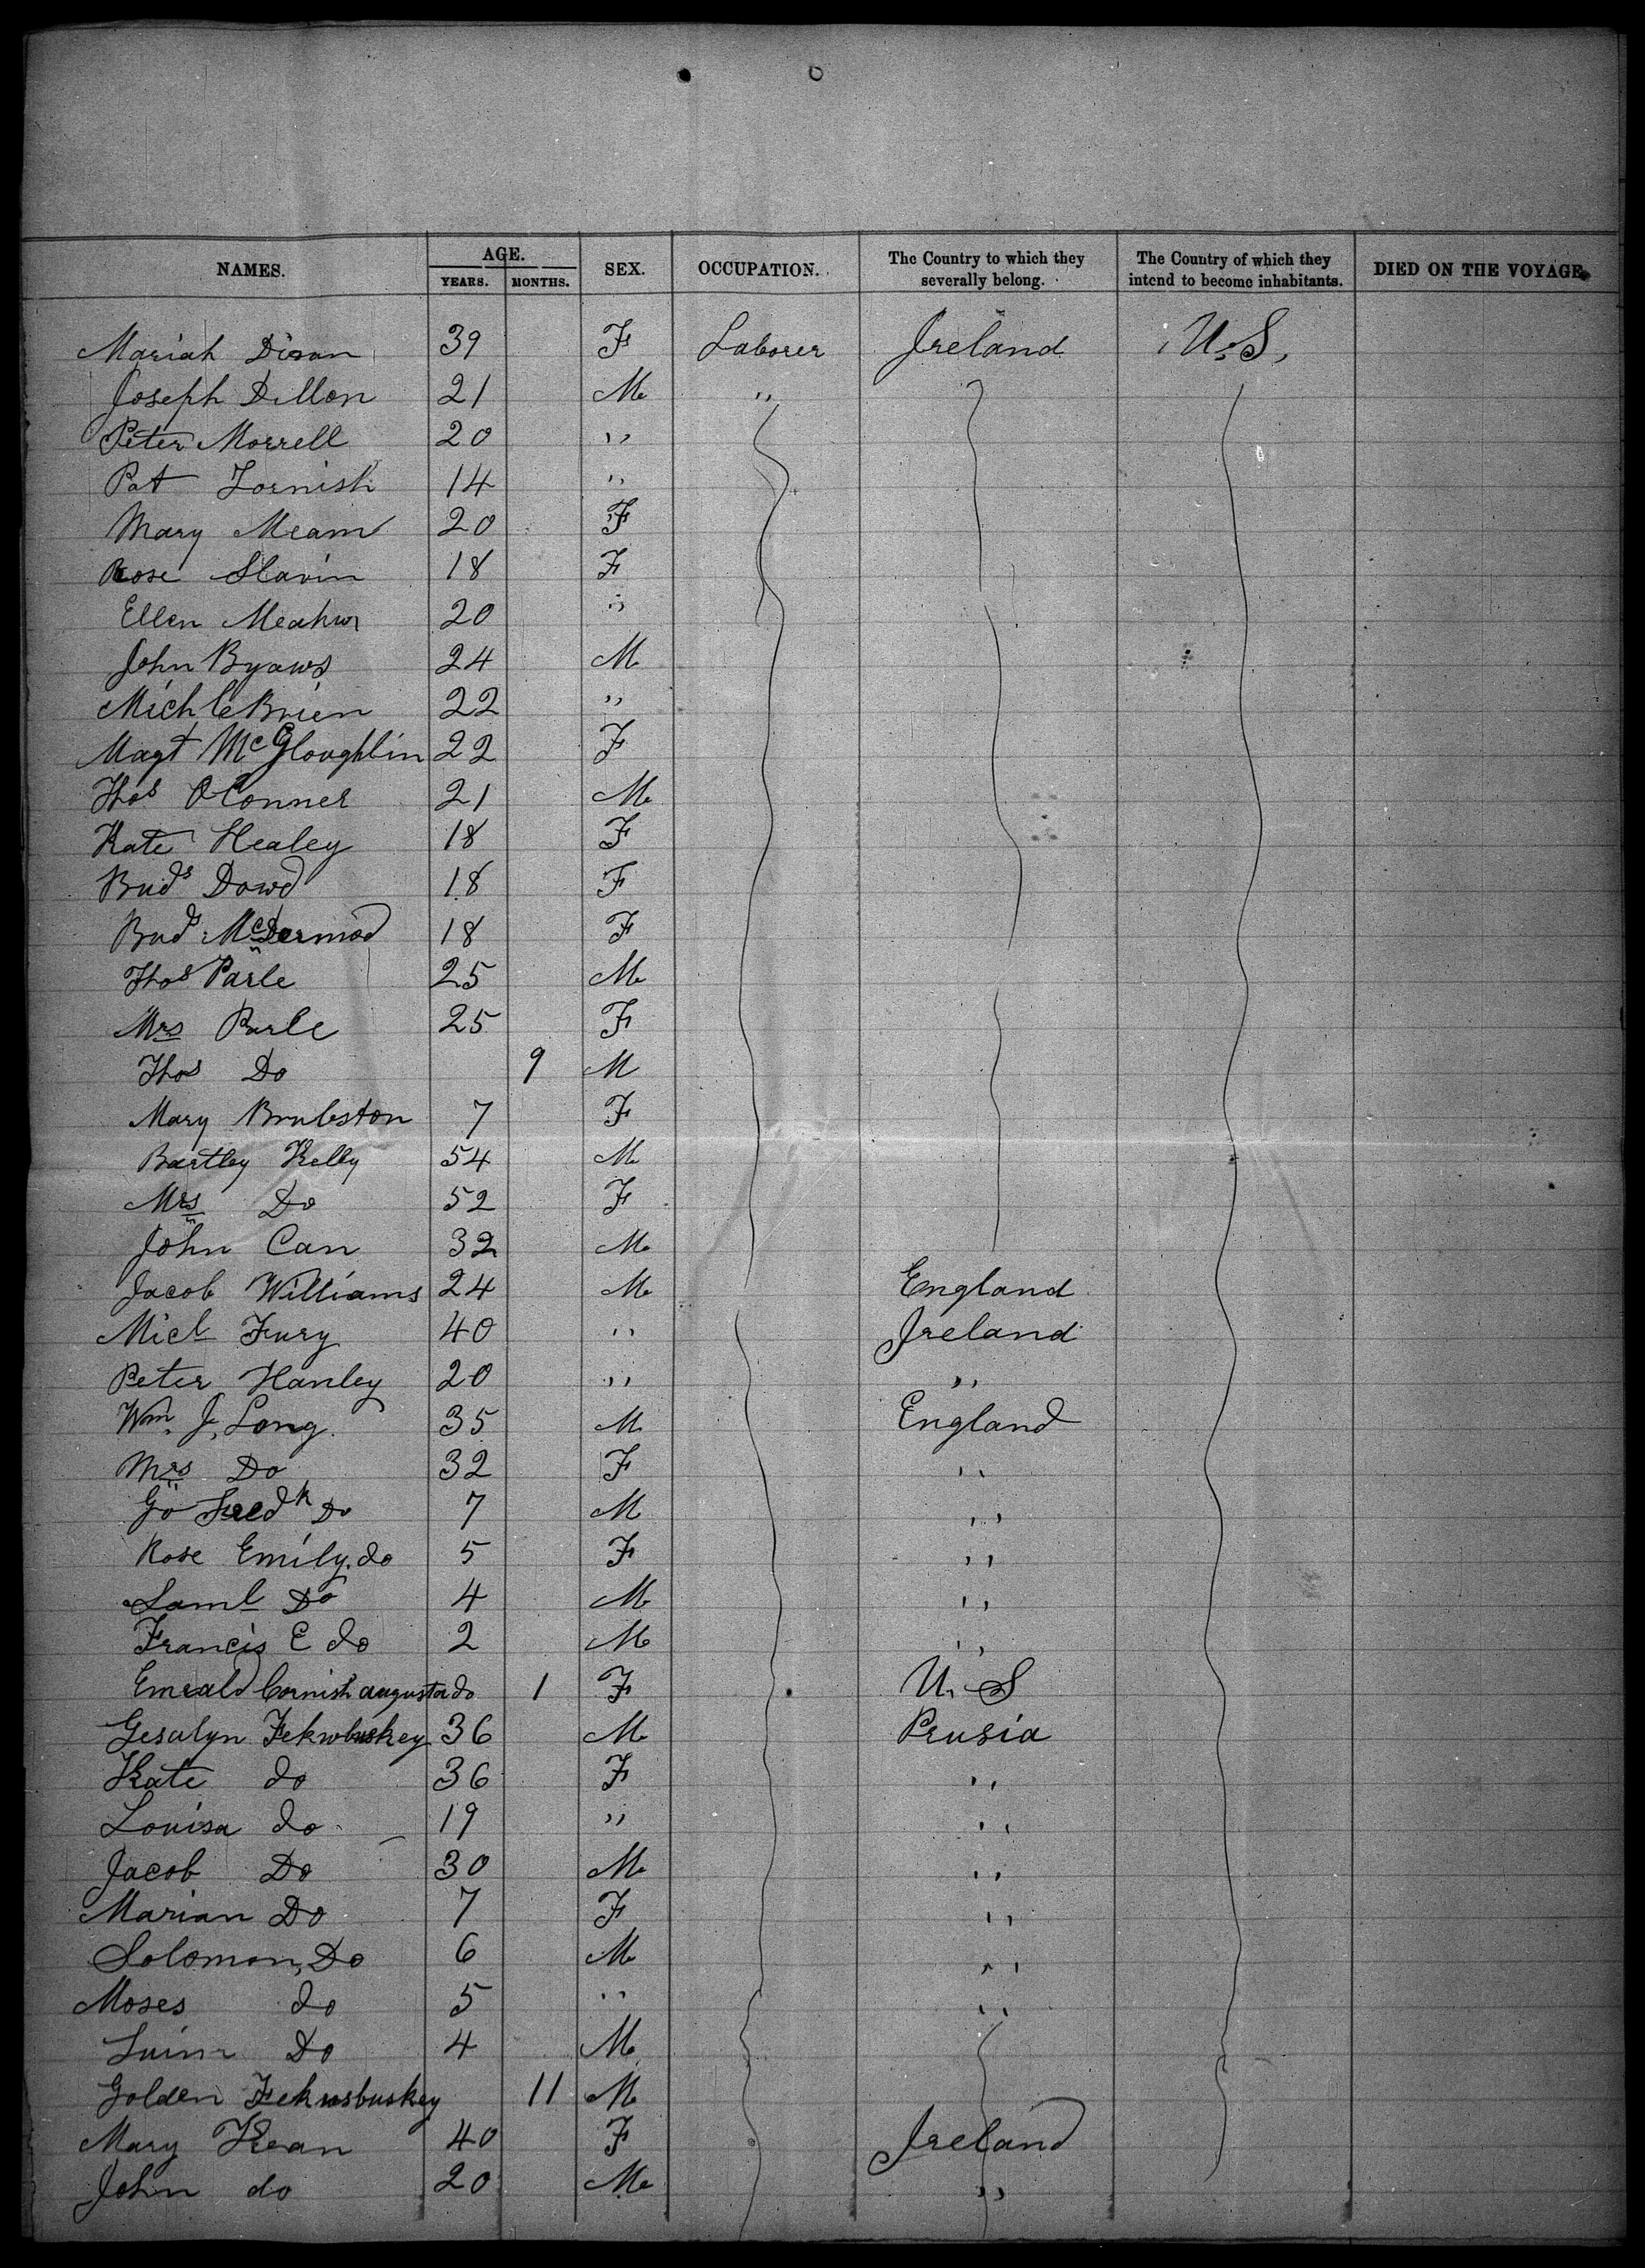 NAMES. AGE. YEARS. MONTHS. SEX. OCCUPATION. The Country to which they severally belong. The Country of which they intend to become inhabitants. DIED ON THE VOYAGE.
Mariah Diran 39 F Laborer Ireland U.S.
Joseph Dillon 21 M "
Peter Morrell 20 "
Pat Fornish 14 "
Mary Meam 20 F
Rose Slavin 18 F
Ellen 20 "
John Byaws 24 M
Mich 22 "
Magt McGloughlin 22 F
Thos OConner 21 M
Kate Healey 18 F
Brids Dowd 18 F
Brid McDermod 18 F
Thos Parle 25 M
Mrs Parle 25 F
Thos Do 9 M
Mary 7 F
Bartley Kelly 54 M
Mrs Do 52 F
John Can 32 M
Jacob Williams 24 M England
Micl Fury 40 " Ireland
Peter Hanley 20 " "
Wm. J. Long. 35 M England
Mrs Do 32 F "
Go Fredk Do 7 M "
Rose Emily. do 5 F "
Saml Do 4 M "
Francis E do 2 M "
Emerald Cornish augusta do 1 F U. S
Gesalyn 36 M Prusia
Kate do 36 F "
Louisa do 19 " "
Jacob Do 30 M "
Marian Do 7 F "
Solomon, Do 6 M "
Moses do 5 " "
Do 4 M
Golden 11 M
Mary Kean 40 F Ireland
John do 20 M "